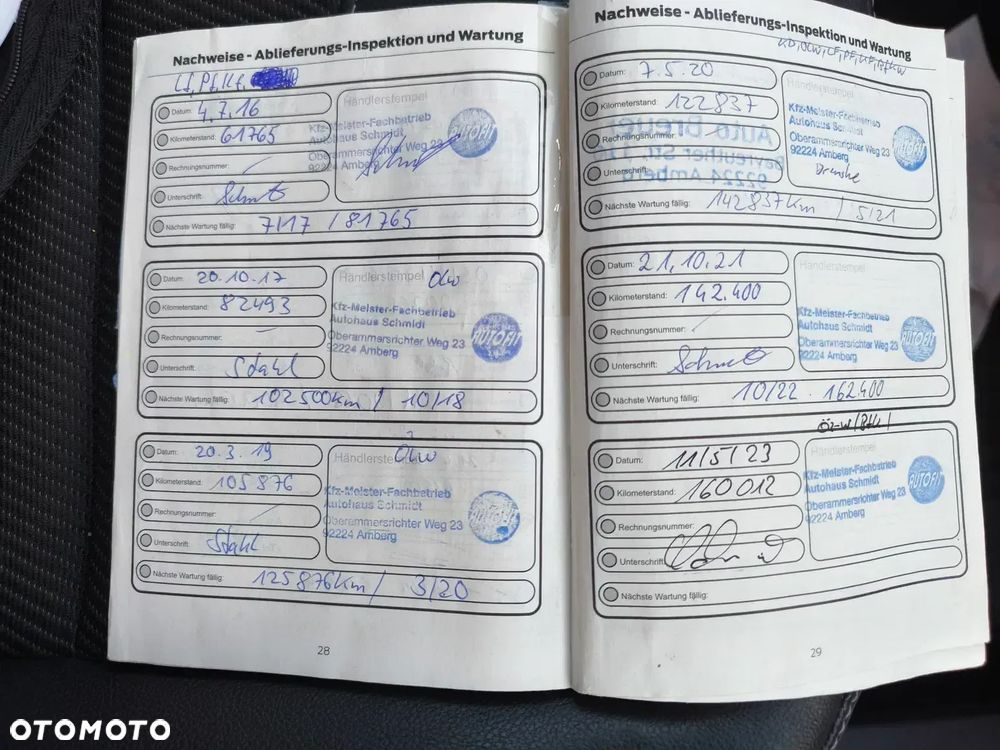 Nachweise - Ablieferungs-Inspektion und Wartung
Datum: 4.7.16
Händlerstempel
Kilometerstand: 61765
Kfz-Meister-Fachbetrieb
Autohaus Schmidt
Oberammersrichter Weg 23
92224 Amberg
AUTOFIT
Rechnungsnummer:
Unterschrift:
Nächste Wartung fällig: 7/17 / 81765
Datum: 20.10.17
Händlerstempel Ölw
Kilometerstand: 82493
Kfz-Meister-Fachbetrieb
Autohaus Schmidt
Oberammersrichter Weg 23
92224 Amberg
AUTOFIT
Rechnungsnummer:
Unterschrift: Stahl
Nächste Wartung fällig: 102500km / 10/18
Datum: 20.3.19
Händlerstempel Ölw
Kilometerstand: 105876
Kfz-Meister-Fachbetrieb
Autohaus Schmidt
Oberammersrichter Weg 23
92224 Amberg
Rechnungsnummer:
Unterschrift: Stahl
Nächste Wartung fällig: 125876km / 3/20
28
Nachweise - Ablieferungs-Inspektion und Wartung
Datum: 7.5.20
Händlerstempel
Kilometerstand: 122837
Kfz-Meister-Fachbetrieb
Autohaus Schmidt
Oberammersrichter Weg 23
92224 Amberg
AUTOFIT
Rechnungsnummer:
Unterschrift:
Nächste Wartung fällig: 142837km / 5/21
Datum: 21.10.21
Händlerstempel
Kilometerstand: 142.400
Kfz-Meister-Fachbetrieb
Autohaus Schmidt
Oberammersrichter Weg 23
92224 Amberg
AUTOFIT
Rechnungsnummer:
Unterschrift:
Nächste Wartung fällig: 10/22 . 162400
Datum: 11/5/23
Händlerstempel
Kilometerstand: 160012
Kfz-Meister-Fachbetrieb
Autohaus Schmidt
Oberammersrichter Weg 23
92224 Amberg
AUTOFIT
Rechnungsnummer:
Unterschrift:
Nächste Wartung fällig:
29
OTOMOTO